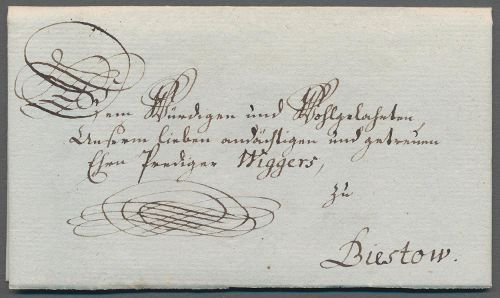 Dem Würdigen und Wohlgelahrten,
Unserm lieben andächtigen und getreuen
Ehrn Prediger Wiggers,
zu
Biestow.